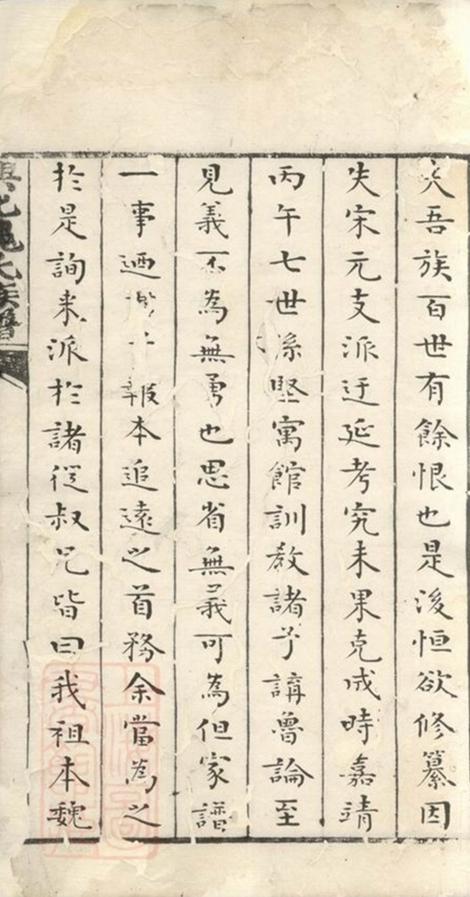 吾族百世有餘恨也是後恒欲修纂因
失宋元支派迂延考究未果克成時嘉靖
丙午七世孫堅寓館訓教諸子講魯論至
見義不為無勇也思省無義可為但家譜
一事迺報本追遠之首務余當為之
於是詢来派於諸從叔兄皆曰我祖本魏
興化魏氏族譜